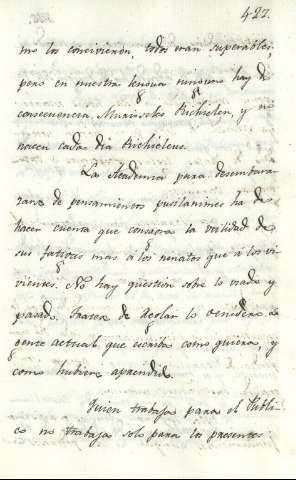 422.
mo los concivieron, todos eran superables,
pero en nuestra lengua ninguno hay de
consecuencia. Murió seles Richieleu, y no
nacen cada dia Richieleus.
La Academia para desembara
zarse de pensamientos pusilanimes ha de
hacer cuenta que consagra la utilidad de
sus fatigas mas a los nenatos que à los vi
vientes. No hay question sobre lo usado y
pasado. Trata se de reglar lo venidero. La
gente actual que escriba como quiera, y
como hubiere aprendido.
Quien trabaja para el Publi
co no trabaja solo para los presentes: